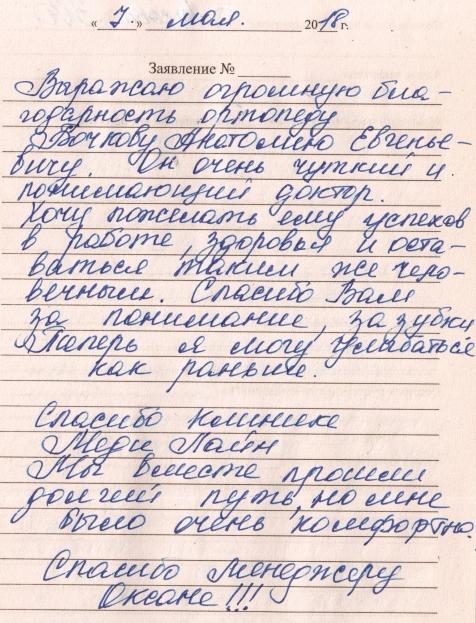 « 7. » мая. 2018 г.
Заявление №
Выражаю огромную бла-
годарность ортопеду
Вочкову Анатолию Евгенье-
вичу. Он очень чуткий и
понимающий доктор.
Хочу пожелать ему успехов
в работе, здоровья и оста-
ваться таким же чело-
вечным. Спасибо Вам
за понимание, за зубки
Теперь я могу улыбаться
как раньше.
Спасибо клинике
Меди Лайн
Мы вместе прошли
долгий путь, но мне
было очень комфортно.
Спасибо менеджеру
Оксане!!!